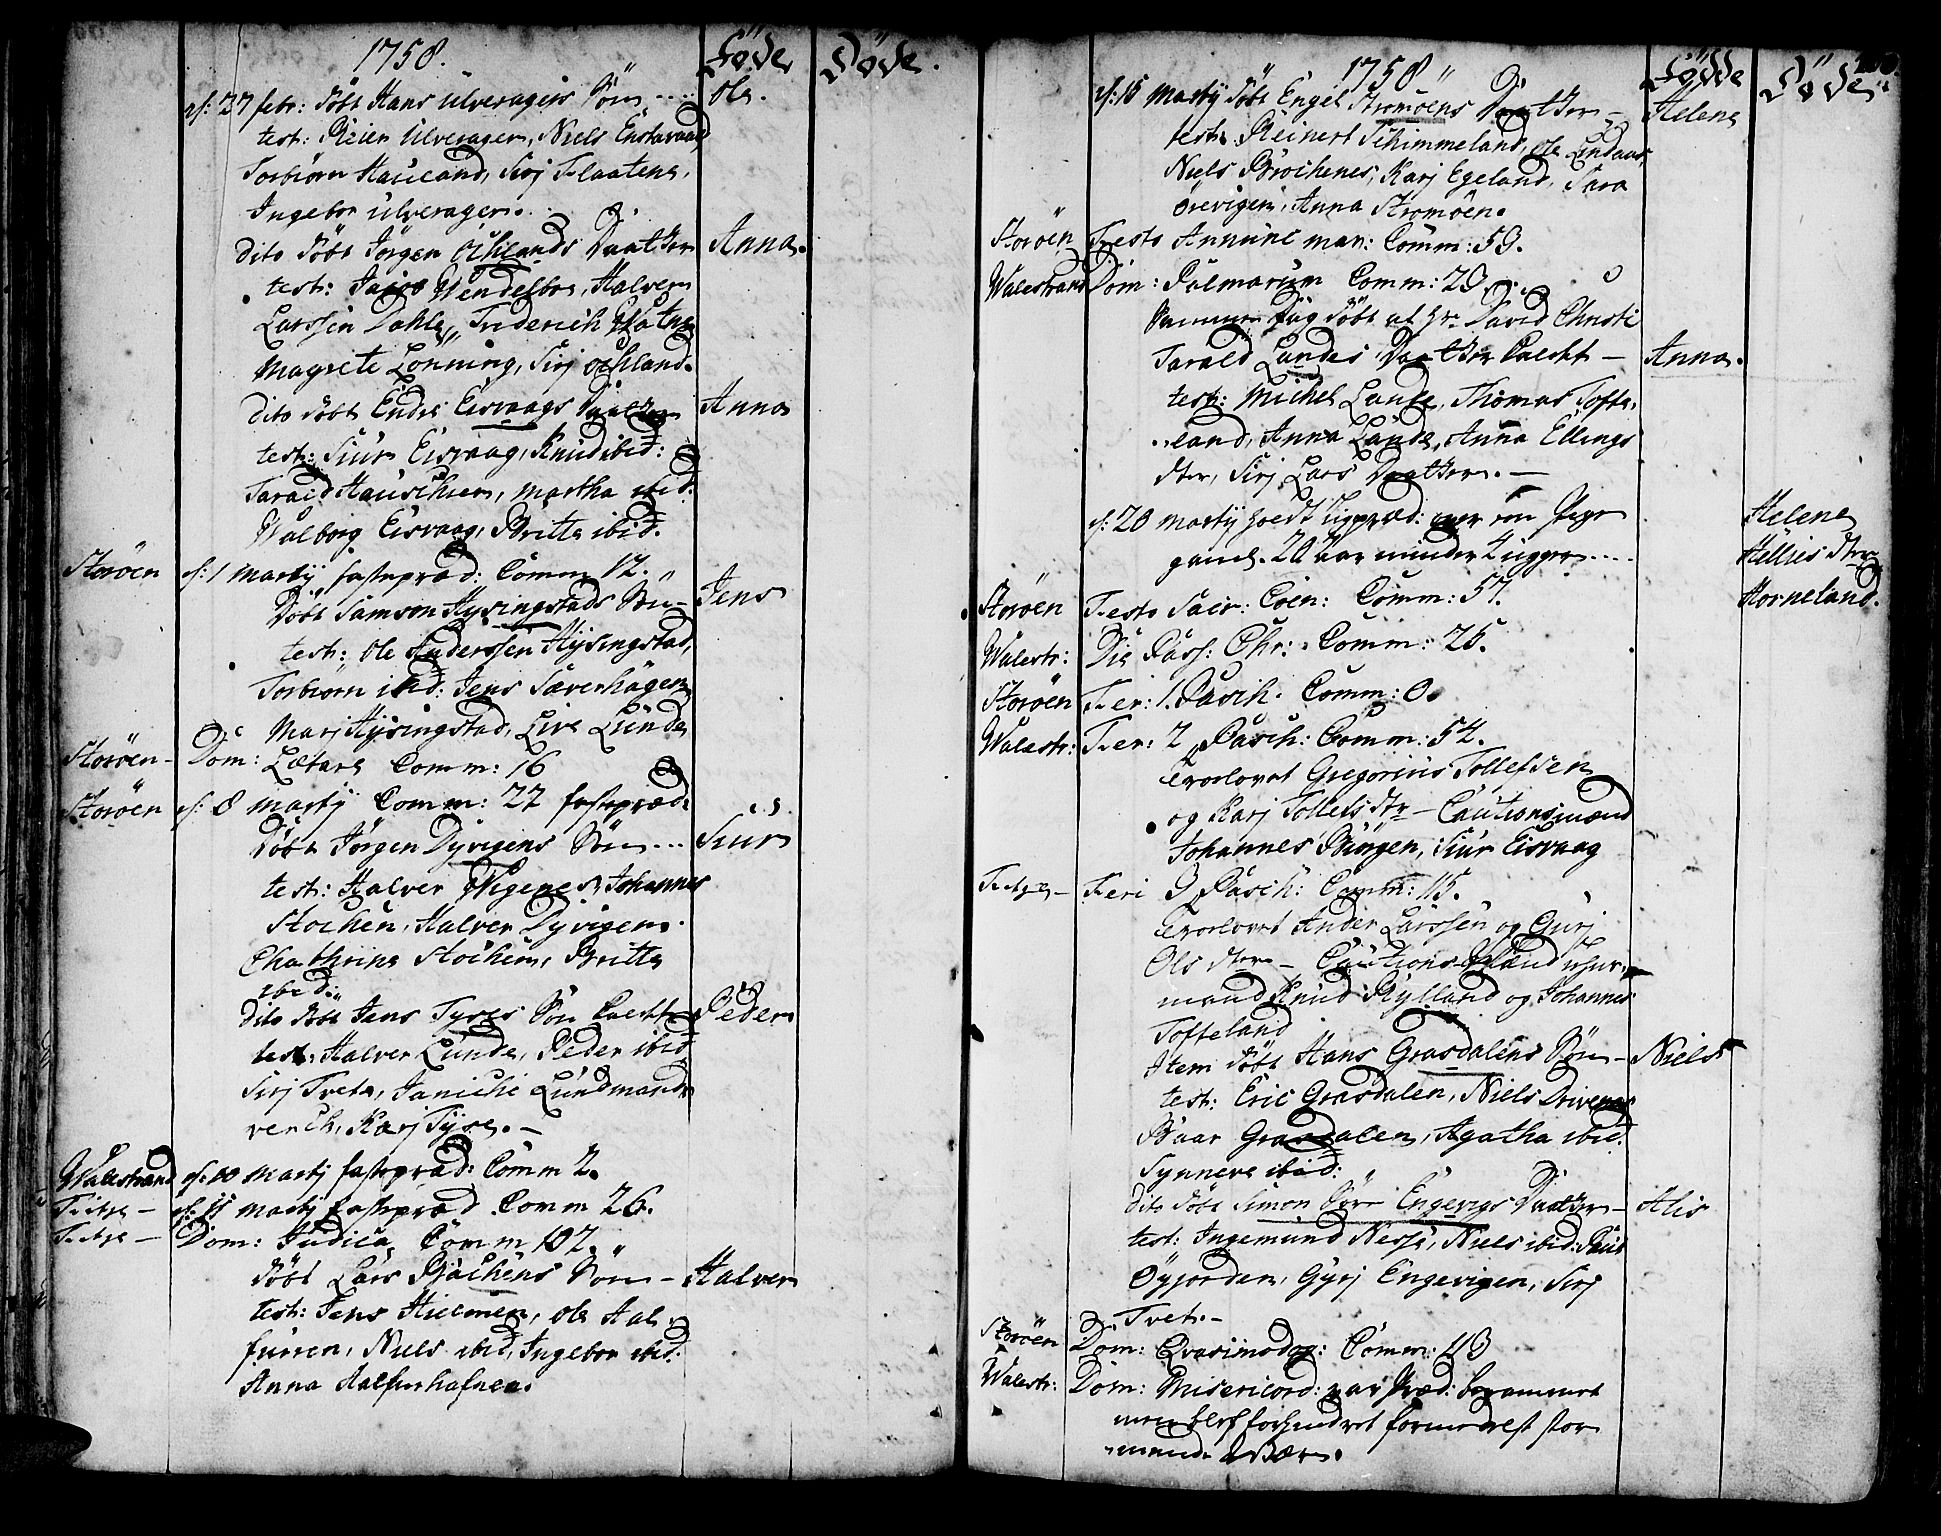 1758.
Föde
Döde.
d: 27 febr: döbt Hans Ulveragers Sön Ole.
test: Reier Ulverager, Niels Enstavaag
Torbiörn Hauland, Sirj Flaatene,
Ingebor Ulverager.
dito döbt Jörgen Öchlands Daatter Anna.
test: Jacob Wendelboe, Halver
Larssen Dahle, Friderich Watne
Magrete Lönning, Sirj Öchland.
dito döbt Endre Eisvaags Daatter Anna
test: Siur Eisvaag, Knud ibid:
Tarald Hauschien, Martha ibid:
Walborg Eisvaag, Britte ibid.
Storöen d: 1 Martij fastepræd: Comm 12.
Döbt Samson Hysingstads Sön Jens
test: Ole Anderssen Hysingstad,
Torbiörn ibid: Jens Sæverhagen
Marj Hysingstad, Live Lunde
Storöen Dom: Lætare Comm: 16
Storöen d: 8 Martij Comm: 22 fastepræd:
Döbt Jörgen Dyvigens Sön Siur
test: Halver Wigenes, Johannes
Stochen, Halver Dyvigen.
Chathrine Stochen, Britte
ibid:
dito döbt Jens Tyses Sön Peder
test: Halver Lunde, Peder ibid
Sirj Tvete, Laniche Lundmands
verch, Karj Tyse.
Walestrand d: 10 Martij fastepræd: Comm 2.
Fitje d: 11 Martij fastepræd. Comm 26.
Fitje Dom: Judica Comm 102.
Döbt Lars Bachens Sön Halver
test: Jens Hielmen, Ole Hal
furren, Niels ibid, Ingebor ibid.
Anna
1758
Födde
Döde
d: 15 Martij döbt Engel Stromöens Daatter Helene
test: Reinert Schimmeland, Ole Lindaas,
Niels Brochenes, Karj Egeland, Sara
Örevigen, Anna Stromöen.
Storöen Festo Annunc mar: Comm: 53.
Walestrand Dom: Palmarum Comm: 20
Samme Dag döbt at Hr. David Christi
Tarald Lundes Daatter Anna.
test: Michel Lunde, Thomas Tofte,
land, Anna Lunde, Anna Ellings
dtr, Sirj Lars Daatter.
d: 20 Martij
gaml. 20 Aar minder 2 uger Helene
Hellies dtr
Horneland.
Storöen Festo Sacr: Coen: Comm: 57.
Walestr: Die Pass: Chr: Comm: 25.
Storöen Fer: 1. Pasch. Comm: 0.
Walestr: Fer: 2 Pasch: Comm: 54.
Trorlovet Gregorius Tollefsen
og Karj Tollefs dtr Cautionsmænd
Johannes Bungen, Siur Eisvaag
Fitje Feri 3 Pasch: Comm: 115.
Trorlovet Ander Larssen og Gurj
Ols dtr Cautions Mænd
mand Knud Rylland og Johannes
Tofteland
Item döbt Hans Grasdalens Sön Niels
test: Eric Grasdalen, Niels Drivenes
Baar Grasdalen, Agatha ibid.
Synneve ibid:
dito döbt Simon Engevigs Daatter Alis
test: Ingemund Nesse, Niels ibid:
Öyjorden, Gyrj Engevigen, Sirj
Tvet.
Storöen Dom: Qvasimodog: Comm: 43
Walestr: Dom: Misericord: var Præd: berammet
men blef forhindret formedelst stor